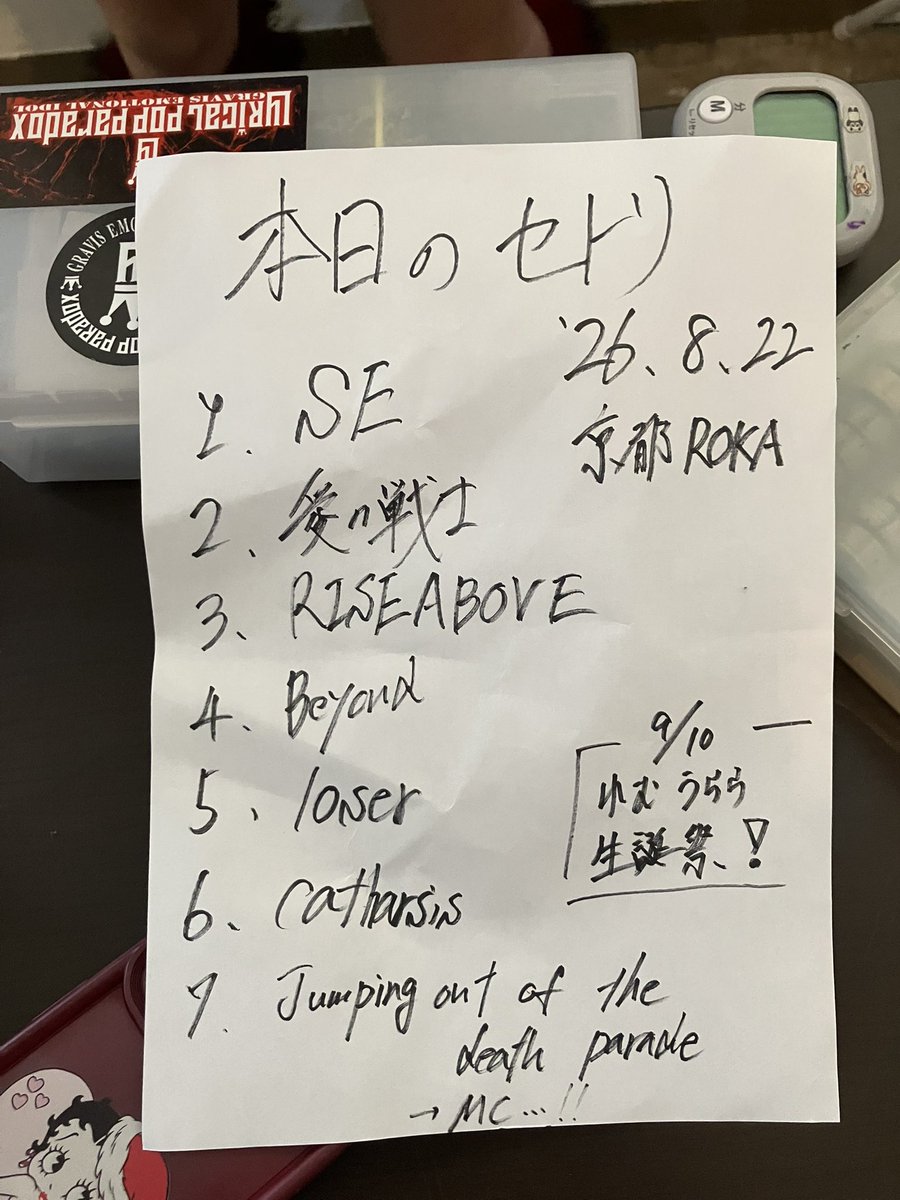 LYRICAL POP PARADOX
GRAVIS EMOTIONAL IDOL
M
分
本日のセトリ
'26、8、22
京都ROKA
1. SE
2、愛の戦士
3、RISEABOVE
4、Beyond
5、loser
6、Catharsis
7. Jumping out of the
death parade
→ MC…!!
9/10
ゆむうらら
生誕祭、!